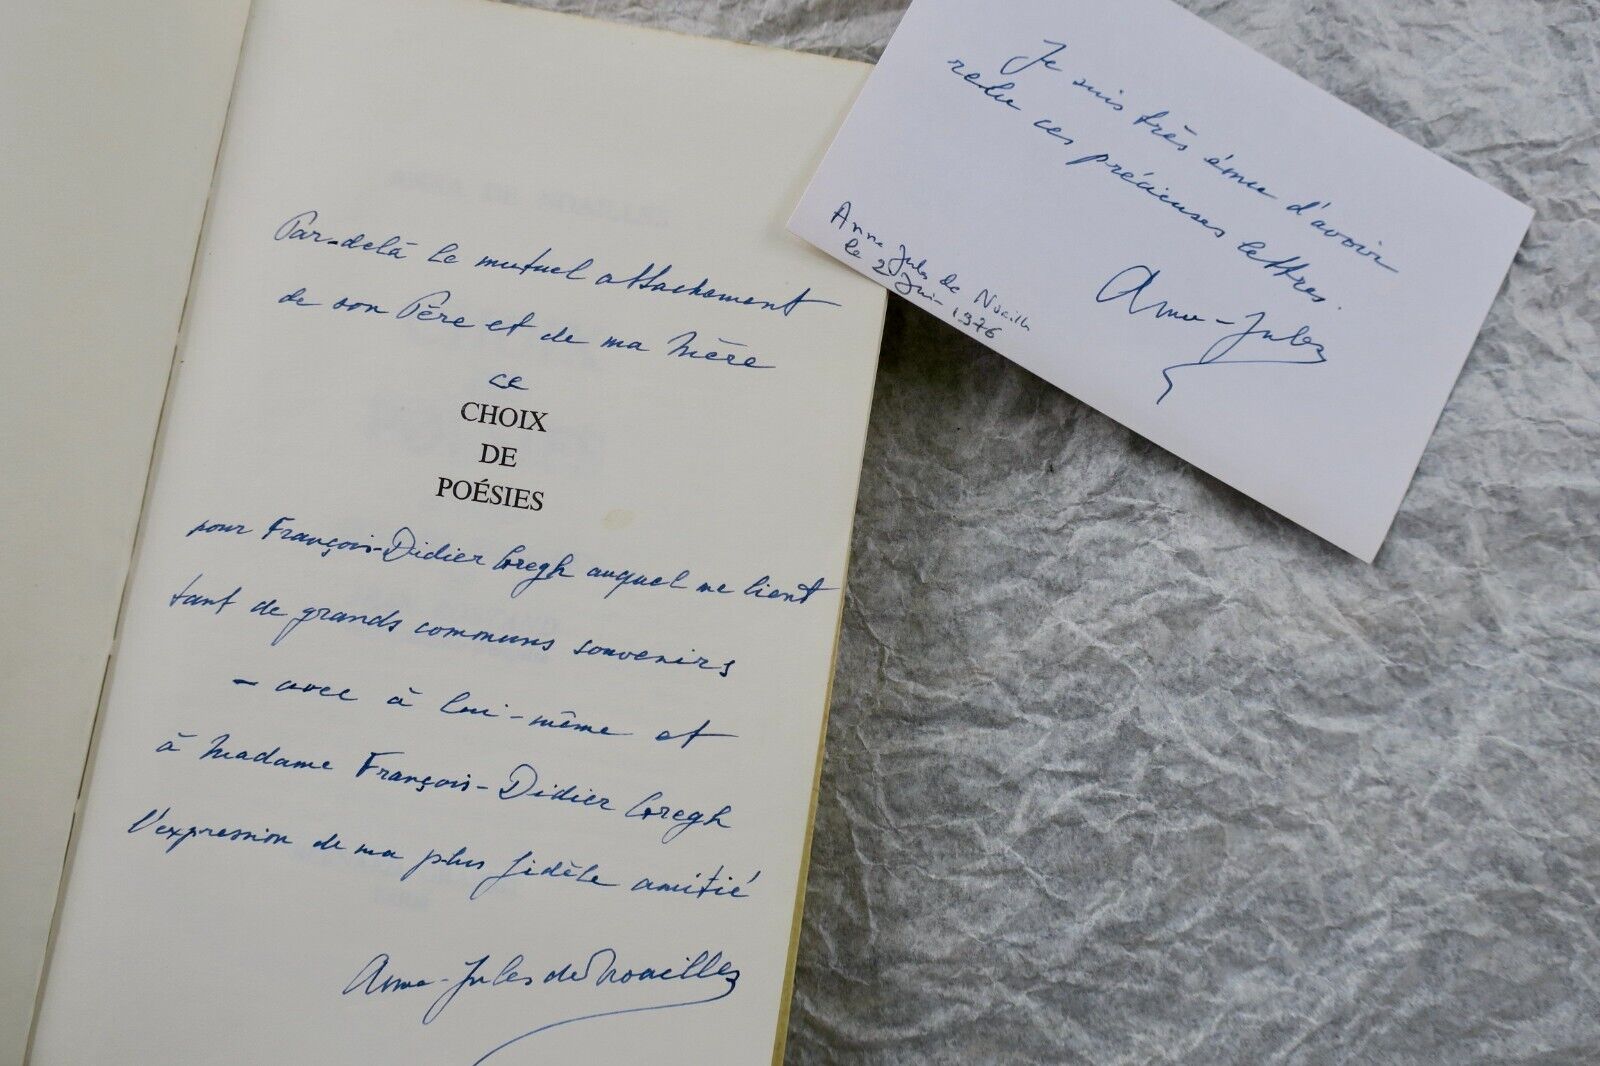 Par-delà le mutuel attachement
de son Père et de ma Mère
ce
CHOIX
DE
POÉSIES
pour François-Didier Gregh auquel me lient
tant de grands communs souvenirs
- avec à lui-même et
à Madame François-Didier Gregh
l'expression de ma plus fidèle amitié
Anne-Jules de Noailles
Je suis très ému d'avoir
relu ces précieuses lettres.
Anne-Jules
Anne Jules de Noailles
le 2 Juin 1976